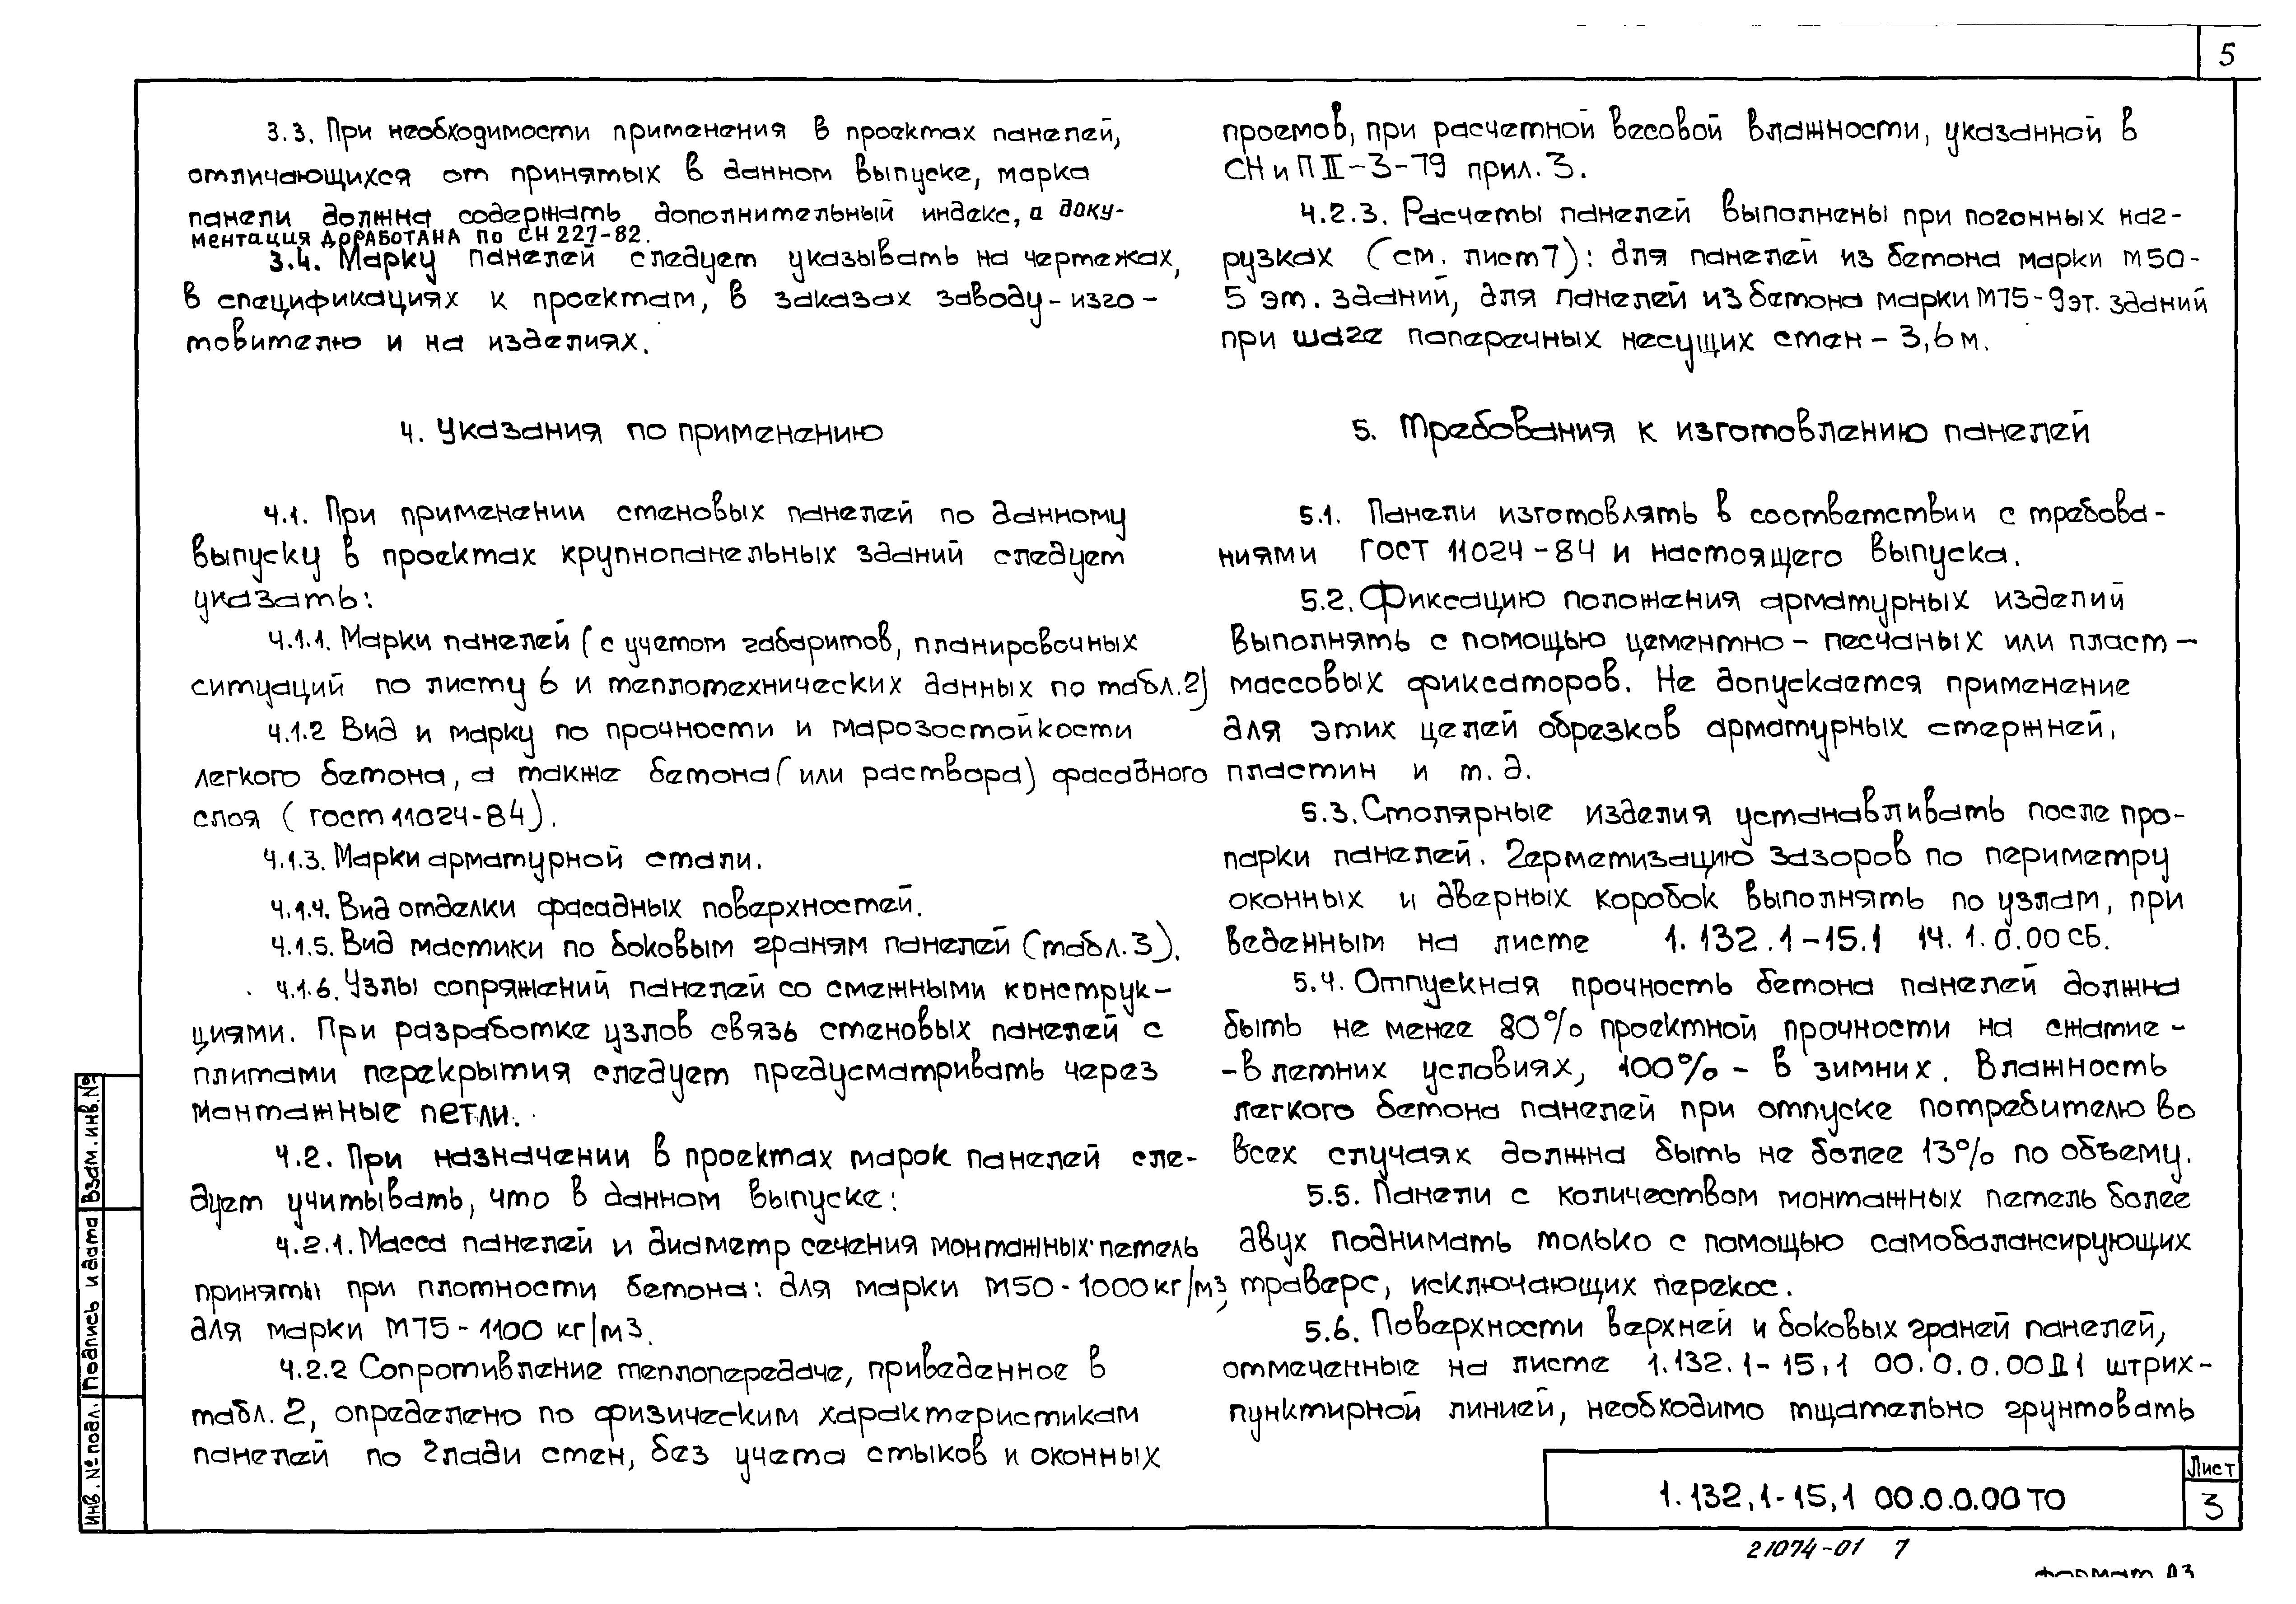 5
3.3. При необходимости применения в проектах панелей,
отличающихся от принятых в данном выпуске, марка
панели должна содержать дополнительный индекс, а доку-
ментация доработана по СН 227-82.
3.4. Марку панелей следует указывать на чертежах,
в спецификациях к проектам, в заказах заводу-изго-
товителю и на изделиях.
4. Указания по применению
4.1. При применении стеновых панелей по данному
выпуску в проектах крупнопанельных зданий следует
указать:
4.1.1. Марки панелей (с учетом габаритов, планировочных
ситуаций по листу 6 и теплотехнических данных по табл.2)
4.1.2 Вид и марку по прочности и марозостойкости
легкого бетона, а также бетона (или раствора) фасадного
слоя (ГОСТ 11024-84).
4.1.3. Марки арматурной стали.
4.1.4. Вид отделки фасадных поверхностей.
4.1.5. Вид мастики по боковым граням панелей (табл.3).
4.1.6. Узлы сопряжений панелей со смежными конструк-
циями. При разработке узлов связь стеновых панелей с
плитами перекрытия следует предусматривать через
монтажные петли.
4.2. При назначении в проектах марок панелей сле-
дует учитывать, что в данном выпуске:
4.2.1. Масса панелей и диаметр сечения монтажных петель
приняты при плотности бетона: для марки М50-1000кг/м3,
для марки М75-1100 кг/м3.
4.2.2 Сопротивление теплопередаче, приведенное в
табл. 2, определено по физическим характеристикам
панелей по глади стен, без учета стыков и оконных
проемов, при расчетной весовой влажности, указанной в
СНиП II-3-79 прил.3.
4.2.3. Расчеты панелей выполнены при погонных наг-
рузках (см. лист 7): для панелей из бетона марки М50-
5 эт. зданий, для панелей из бетона марки М75-9эт. зданий
при шаге поперечных несущих стен - 3,6м.
5. Требования к изготовлению панелей
5.1. Панели изготовлять в соответствии с требова-
ниями ГОСТ 11024-84 и настоящего выпуска.
5.2. Фиксацию положения арматурных изделий
выполнять с помощью цементно-песчаных или пласт-
массовых фиксаторов. Не допускается применение
для этих целей обрезков арматурных стержней,
пластин и т.д.
5.3. Столярные изделия устанавливать после про-
парки панелей. Герметизацию зазоров по периметру
оконных и дверных коробок выполнять по узлам, при
веденным на листе 1.132.1-15.1 14.1.0.00СБ.
5.4. Отпускная прочность бетона панелей должна
быть не менее 80% проектной прочности на сжатие -
-в летних условиях, 100% - в зимних. Влажность
легкого бетона панелей при отпуске потребителю во
всех случаях должна быть не более 13% по объему.
5.5. Панели с количеством монтажных петель более
двух поднимать только с помощью самобалансирующих
траверс, исключающих перекос.
5.6. Поверхности верхней и боковых граней панелей,
отмеченные на листе 1.132.1-15,1 00.0.0.00Д1 штрих-
пунктирной линией, необходимо тщательно грунтовать
Взам. инв. №
Подпись и дата
Инв. № подл.
1.132,1-15,1 00.0.0.00 ТО
Лист
3
21074-01 7
Формат А3